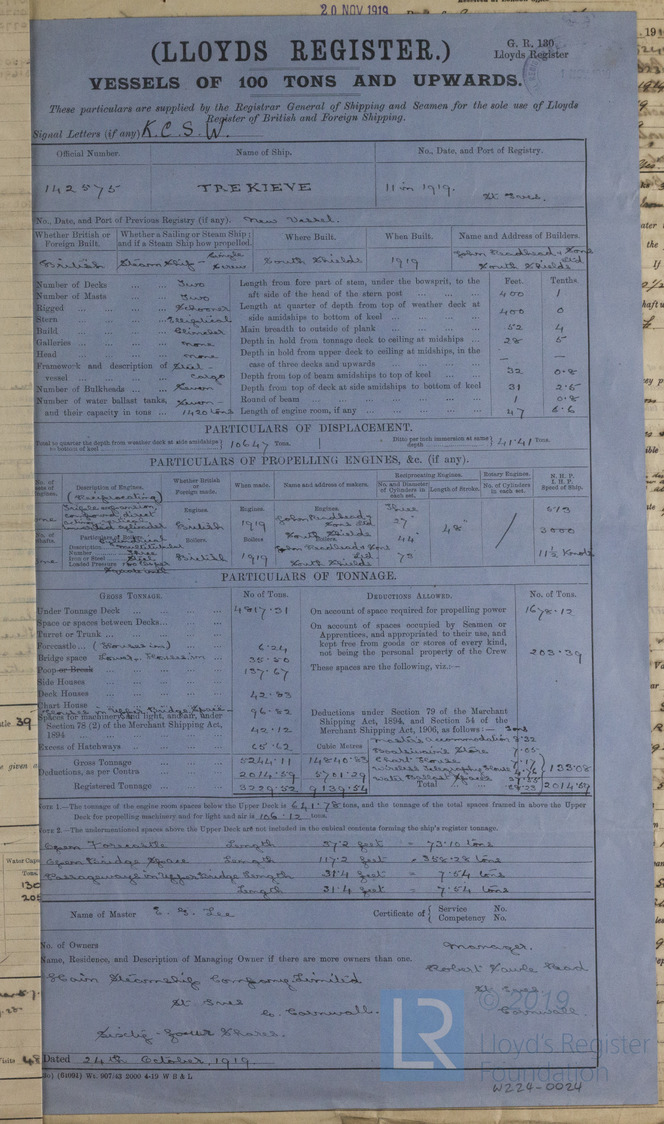 20 NOV 1919
(LLOYDS REGISTER.)
G. R. 130
Lloyds Register
VESSELS OF 100 TONS AND UPWARDS.
These particulars are supplied by the Registrar General of Shipping and Seamen for the sole use of Lloyds
Register of British and Foreign Shipping.
Signal Letters (if any) K.C.S.W.
Official Number. Name of Ship. No., Date, and Port of Registry.
142575 TREKIEVE 11 in 1919. St Ives.
No., Date, and Port of Previous Registry (if any). New Vessel.
Whether British or Foreign Built. Whether a Sailing or Steam Ship; and if a Steam Ship how propelled. Where Built. When Built. Name and Address of Builders.
British Steam Ship - Single Screw South Shields 1919 John Readhead & Sons Ltd South Shields
Number of Decks ... ... Two
Number of Masts ... ... Two
Rigged ... ... Schooner
Stern ... ... Elliptical
Build ... ... Clincher
Galleries ... ... none
Head ... ... none
Framework and description of vessel ... ... Steel - cargo
Number of Bulkheads ... ... Seven
Number of water ballast tanks, and their capacity in tons ... Seven - 1420 tons
Feet. Tenths.
Length from fore part of stem, under the bowsprit, to the aft side of the head of the stern post ... 400 1
Length at quarter of depth from top of weather deck at side amidships to bottom of keel ... 400 0
Main breadth to outside of plank ... 52 4
Depth in hold from tonnage deck to ceiling at midships ... 28 5
Depth in hold from upper deck to ceiling at midships, in the case of three decks and upwards ... — —
Depth from top of beam amidships to top of keel ... 32 0.8
Depth from top of deck at side amidships to bottom of keel 31 2.5
Round of beam ... 1 0.8
Length of engine room, if any ... 47 6.6
PARTICULARS OF DISPLACEMENT.
Total to quarter the depth from weather deck at side amidships to bottom of keel 10647 Tons. Ditto per inch immersion at same depth 41.41 Tons.
PARTICULARS OF PROPELLING ENGINES, &c. (if any).
No. of sets of Engines. Description of Engines. Whether British or Foreign made. When made. Name and address of makers. Reciprocating Engines. No. and Diameter of Cylinders in each set. Length of Stroke. Rotary Engines. No. of Cylinders in each set. N. H. P. I. H. P. Speed of Ship.
(Reciprocating)
one Triple expansion compound direct acting vertical inverted cylinder Engines. British Engines. 1919 Engines. John Readhead & Sons Ltd South Shields Three 27" 44" 73 48" 3000 11½ Knots
No. of Shafts. Particulars of Boilers. Boilers. Boilers. Boilers.
one Description Cylindrical multitubular
Number Three
Iron or Steel Steel
Loaded Pressure
British 1919 John Readhead & Sons Ltd South Shields
PARTICULARS OF TONNAGE.
GROSS TONNAGE. No of Tons. DEDUCTIONS ALLOWED. No. of Tons.
Under Tonnage Deck ... 4817.31
Space or spaces between Decks ...
Turret or Trunk ...
Forecastle ... (Houses in) ... 6.24
Bridge space Town, Houses in ... 35.50
Poop or Break ... 137.67
Side Houses
Deck Houses ... 42.83
Chart House ...
Houses in Upper Bridge Space 96.82
Spaces for machinery, and light, and air, under Section 78 (2) of the Merchant Shipping Act, 1894 ... 42.12
Excess of Hatchways ... 65.62
On account of space required for propelling power 1678.12
On account of spaces occupied by Seamen or Apprentices, and appropriated to their use, and kept free from goods or stores of every kind, not being the personal property of the Crew 203.39
These spaces are the following, viz.:—
Deductions under Section 79 of the Merchant Shipping Act, 1894, and Section 54 of the Merchant Shipping Act, 1906, as follows:— Tons
Master's accommodation 9.32
Boatswain's Store 7.55
Chart House
Wireless Telegraphy House
Water Ballast Space
133.08
Cubic Metres
Gross Tonnage 5244.11 14840.83
Deductions, as per Contra 2014.59 5701.29 Total 2014.59
Registered Tonnage 3229.52 9139.54
NOTE 1.—The tonnage of the engine room spaces below the Upper Deck is 641.78 tons, and the tonnage of the total spaces framed in above the Upper
Deck for propelling machinery and for light and air is 106.12 tons.
NOTE 2.—The undermentioned spaces above the Upper Deck are not included in the cubical contents forming the ship's register tonnage.
Open Forecastle Length 37.2 feet = 73.10 tons
Open Bridge Space Length 117.2 feet = 358.28 tons
Passageways in Upper Bridge Length 31.4 feet = 7.54 tons
Length 31.4 feet = 7.54 tons
Name of Master E. G. Lee Certificate of { Service No. Competency No.
No. of Owners
Name, Residence, and Description of Managing Owner if there are more owners than one.
Manager.
Hain Steamship Company Limited
Robert Read
St Ives
St Ives
Co. Cornwall.
Cornwall.
Sixty-four Shares.
Dated 24th October, 1919.
(64094) Wt. 907/43 2000 4-19 W B & L
LR
© 2019
Lloyd's Register
Foundation
W224-0024